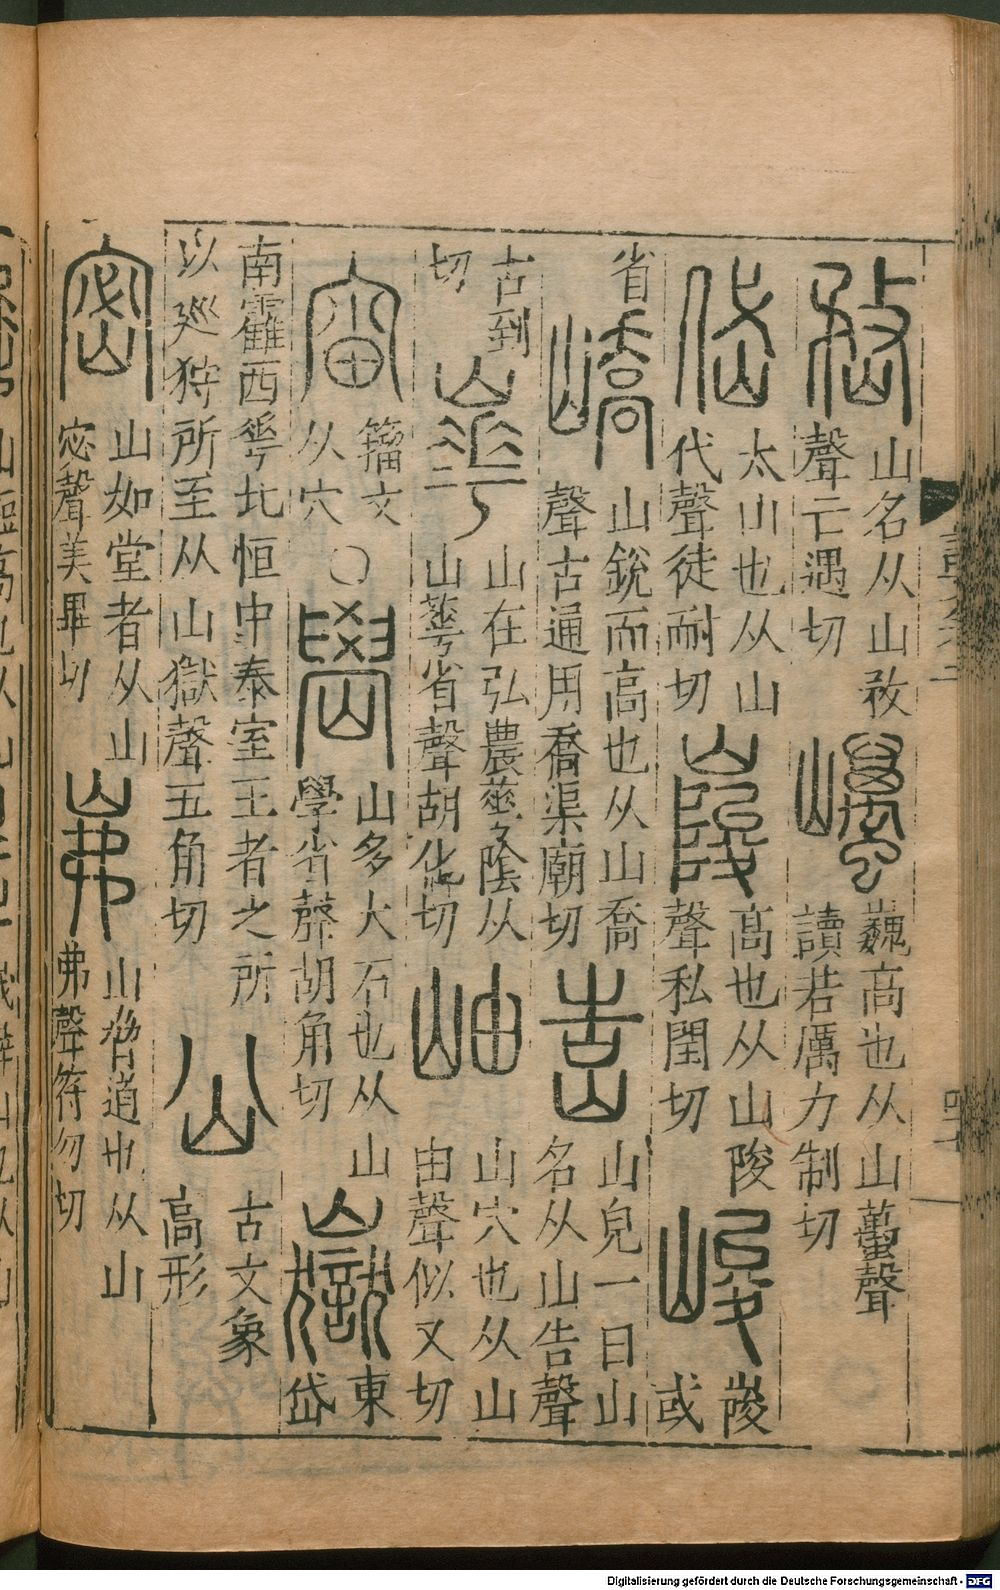 嵍
山名从山敄
聲亡遇切
巁
巍高也从山蠆聲
讀若厲力制切
岱
太山也从山
代聲徒耐切
高也从山陖
聲私閏切
峻
或
省
嶠
山銳而高也从山喬
聲古通用喬渠廟切
峼
山皃一曰山
名从山告聲
古到
切
崋
山在弘農華陰从
山華省聲胡化切
岫
山穴也从山
由聲似又切
籒文
从穴
○
嶨
山多大石也从山
學省聲胡角切
嶽
東
岱
南靃西華北恒中泰室王者之所
以巡狩所至从山獄聲五角切
古文象
高形
密
山如堂者从山
宓聲美畢切
岪
山脅道也从山
弗聲符勿切
Digitalisierung gefördert durch die Deutsche Forschungsgemeinschaft - DFG